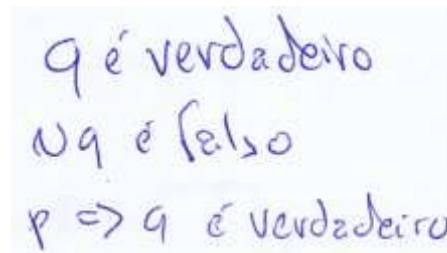 q é verdadeiro
Nq é falso
p => q é verdadeiro